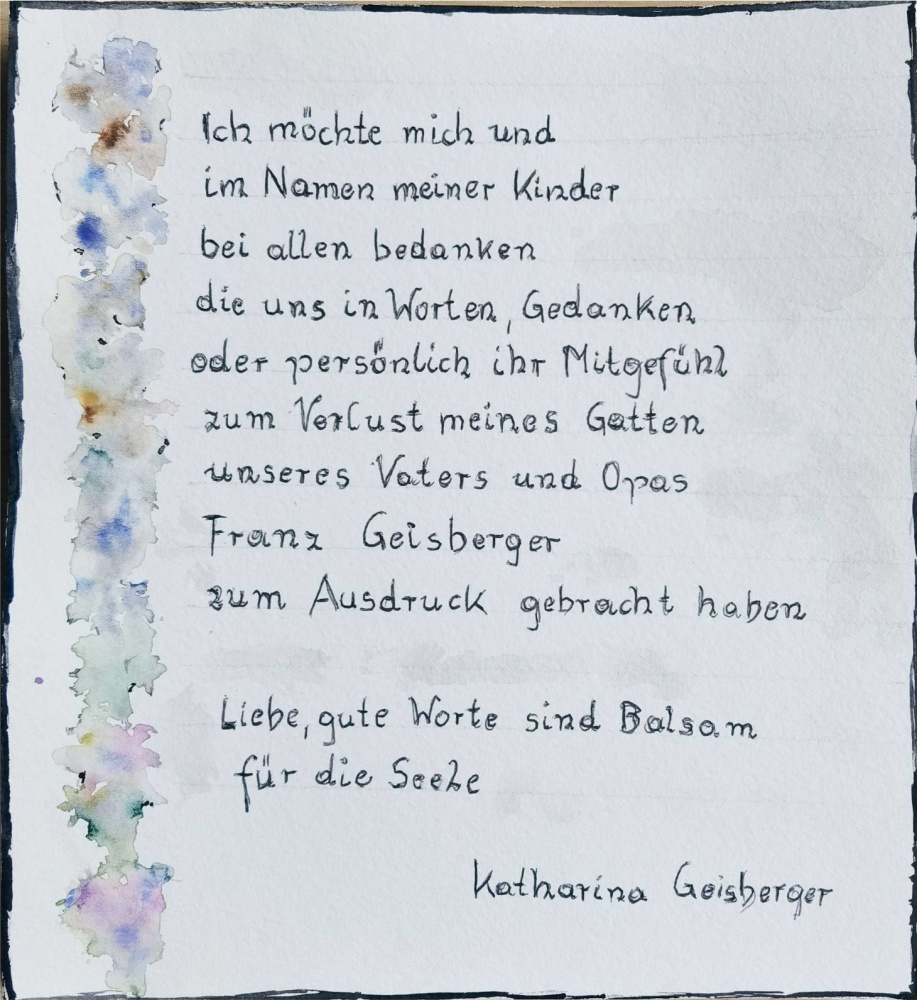 Ich möchte mich und
im Namen meiner Kinder
bei allen bedanken
die uns in Worten, Gedanken
oder persönlich ihr Mitgefühl
zum Verlust meines Gatten
unseres Vaters und Opas
Franz Geisberger
zum Ausdruck gebracht haben
Liebe, gute Worte sind Balsam
für die Seele
Katharina Geisberger